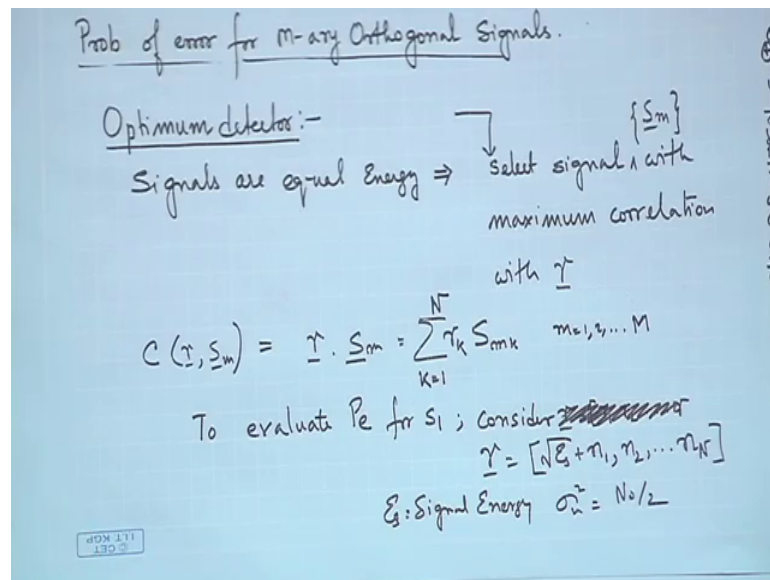 Prob of error for M-ary Orthogonal Signals.
Optimum detector:-
{S̲m}
Signals are equal Energy ⇒ Select signal ∧ with
maximum correlation
with r̲
C (r̲, S̲m) = r̲ . S̲m = ∑_{K=1}^{N} r_k S_mk m=1,2,... M
To evaluate Pe for S1 ; consider
r̲ = [√Es + n1, n2, ... nN]
Es : Signal Energy σn² = No/2
© CET
I.I.T. KGP